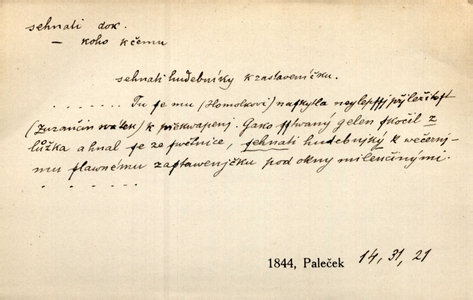 sehnati dok.
— koho k čemu
sehnati hudebníky k zastaveníčku.
. . . . . . . Tu se mu (Homolkovi) naskytla neylepssj přjležitost
(Zuzančin swátek) k překwapenj. Gako sstwaný gelen skočil z
lůžka a hnal se ze swětnice, sehnati hudebnjky k wečernj-
mu slawnému zastawenjčku pod okny milenčinými.
. . . . . . .
1844, Paleček 14, 31, 21